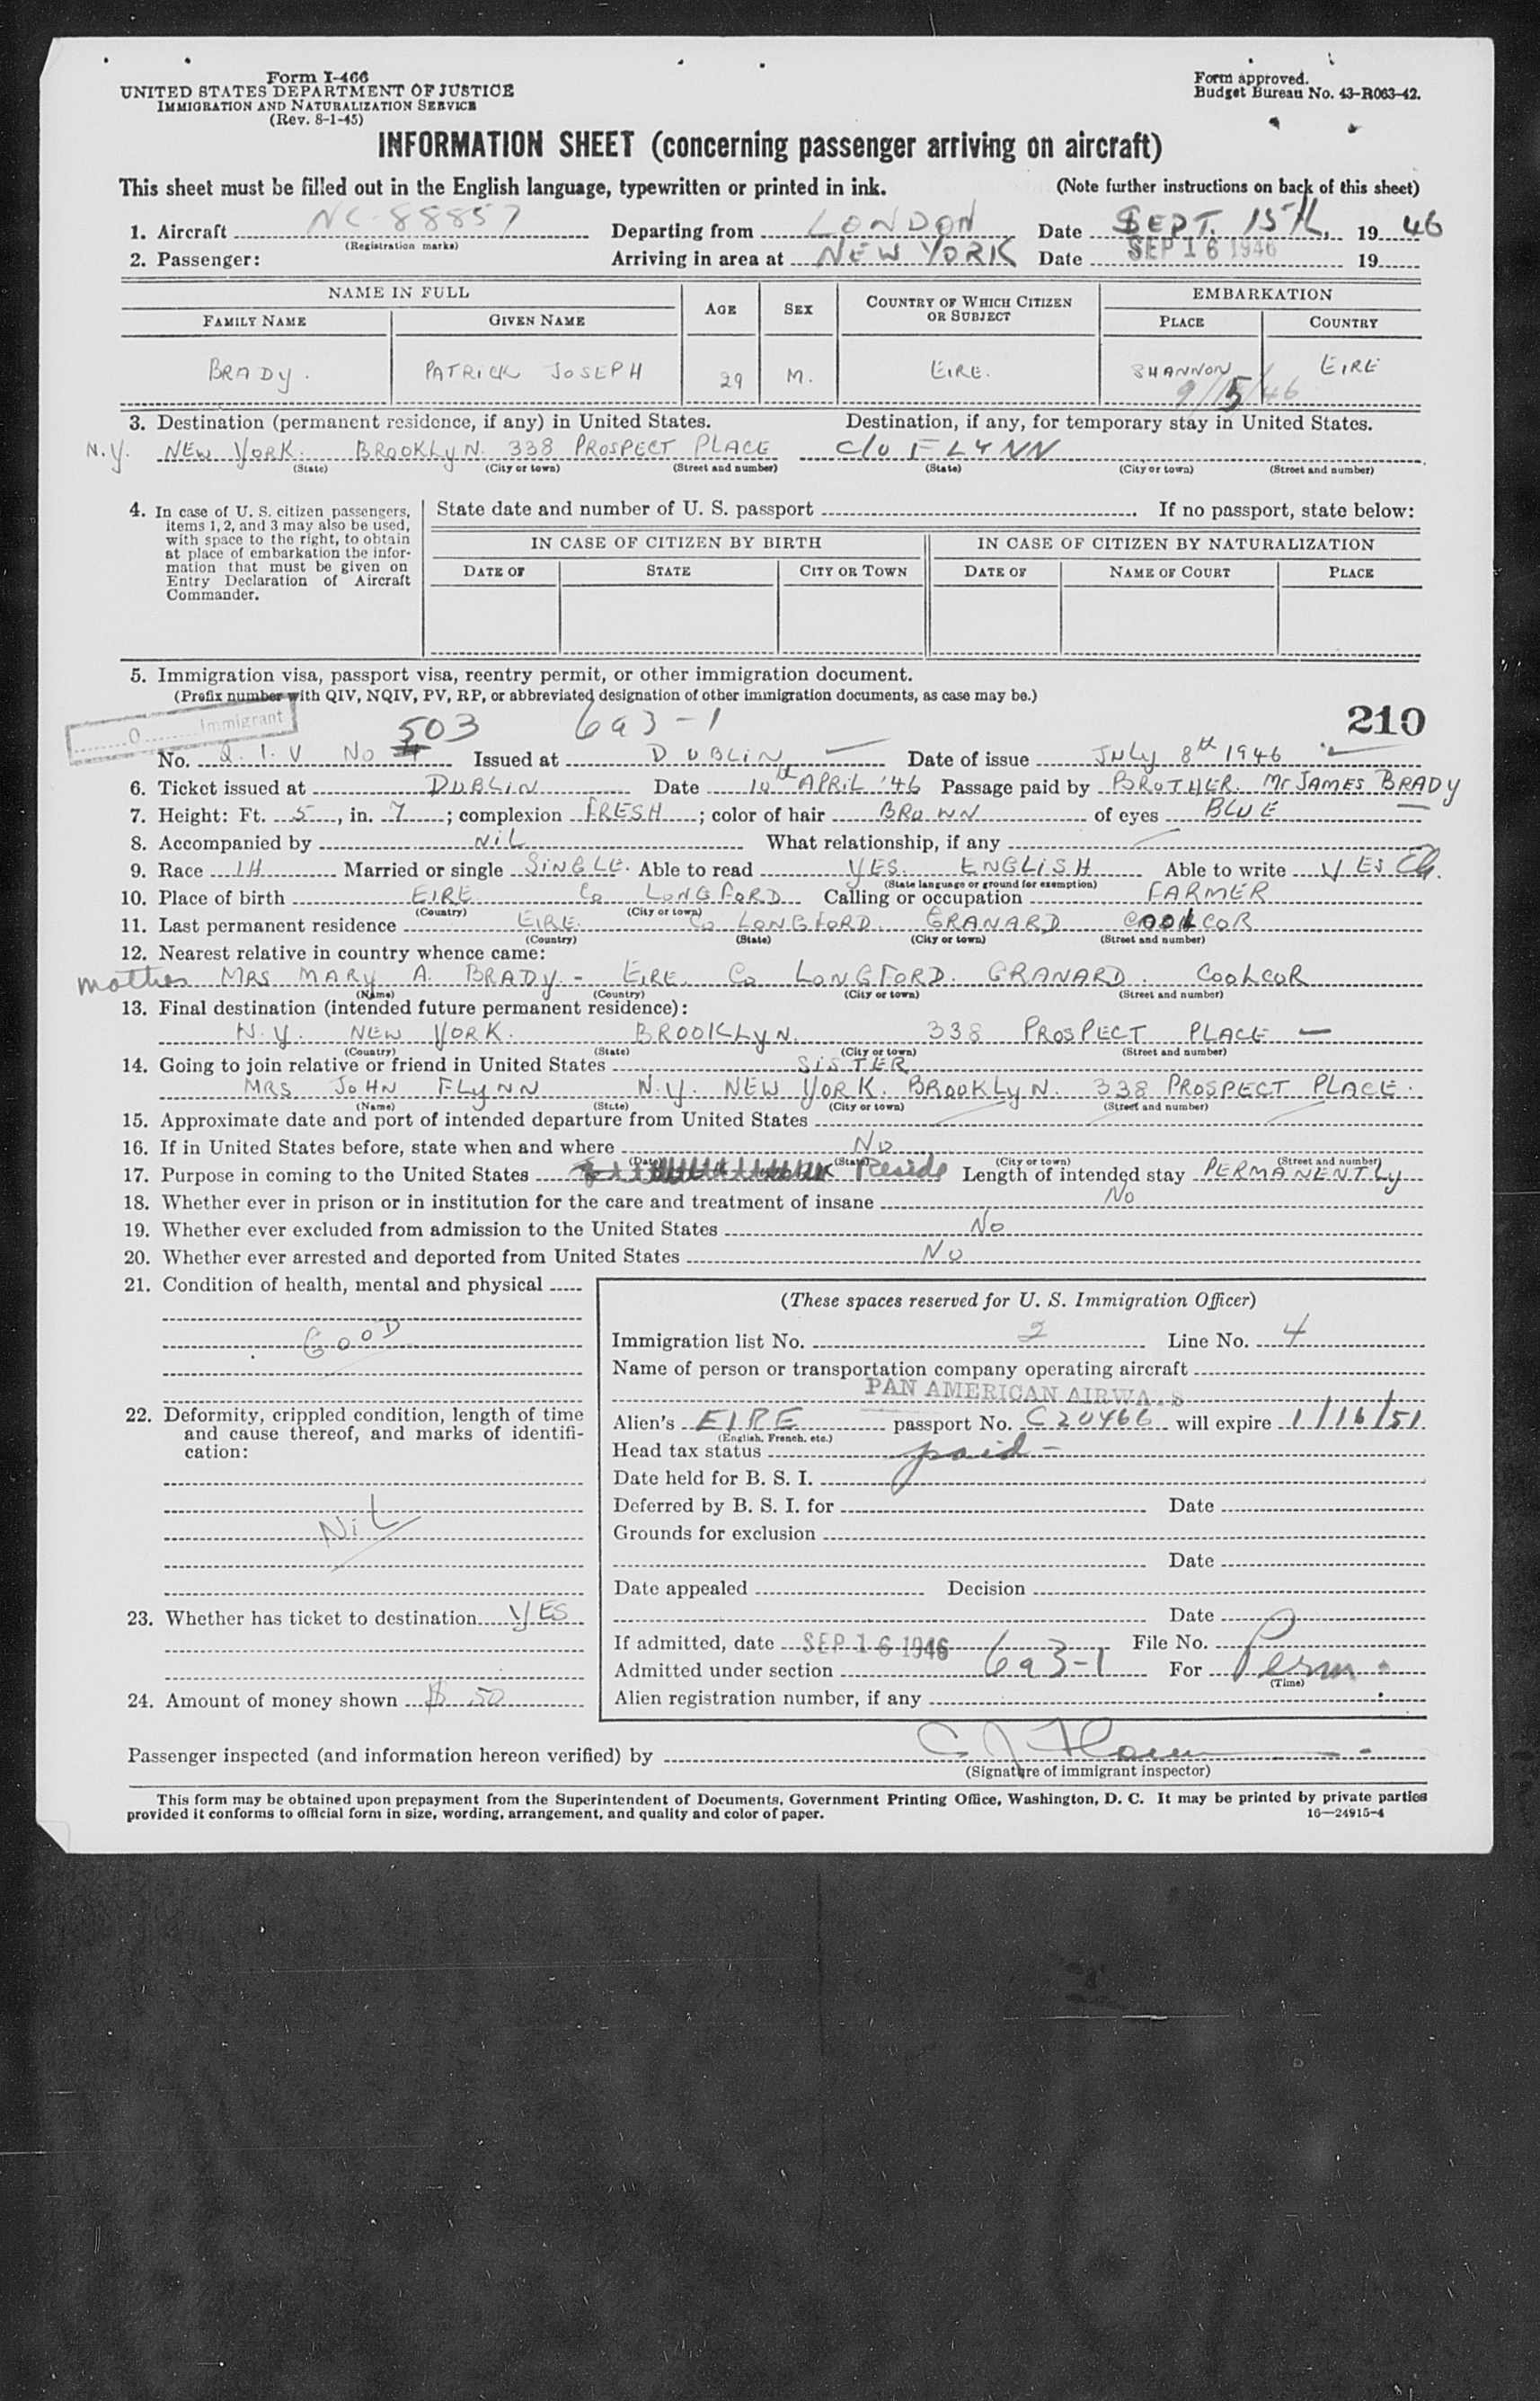 Form I-466
UNITED STATES DEPARTMENT OF JUSTICE
IMMIGRATION AND NATURALIZATION SERVICE
(Rev. 8-1-45)
Form approved.
Budget Bureau No. 43-R063-42.
INFORMATION SHEET (concerning passenger arriving on aircraft)
This sheet must be filled out in the English language, typewritten or printed in ink. (Note further instructions on back of this sheet)
1. Aircraft NC-88857 Departing from LONDON Date SEPT. 15th, 19 46
(Registration marks)
2. Passenger: Arriving in area at NEW YORK Date SEP 16 1946 19
NAME IN FULL AGE SEX COUNTRY OF WHICH CITIZEN OR SUBJECT EMBARKATION
FAMILY NAME GIVEN NAME PLACE COUNTRY
BRADY. PATRICK JOSEPH 29 M. EIRE. SHANNON EIRE
9/15/46
3. Destination (permanent residence, if any) in United States. Destination, if any, for temporary stay in United States.
N.Y. NEW YORK. BROOKLYN. 338 PROSPECT PLACE c/o FLYNN
(State) (City or town) (Street and number) (State) (City or town) (Street and number)
4. In case of U. S. citizen passengers, items 1, 2, and 3 may also be used, with space to the right, to obtain at place of embarkation the information that must be given on Entry Declaration of Aircraft Commander.
State date and number of U. S. passport If no passport, state below:
IN CASE OF CITIZEN BY BIRTH IN CASE OF CITIZEN BY NATURALIZATION
DATE OF STATE CITY OR TOWN DATE OF NAME OF COURT PLACE
5. Immigration visa, passport visa, reentry permit, or other immigration document.
(Prefix number with QIV, NQIV, PV, RP, or abbreviated designation of other immigration documents, as case may be.)
O Immigrant
503 6a3-1 210
No. Q.I.V No Issued at DUBLIN Date of issue JULY 8th 1946
6. Ticket issued at DUBLIN Date 10th APRIL '46 Passage paid by BROTHER. Mr JAMES BRADY
7. Height: Ft. 5, in. 7; complexion FRESH; color of hair BROWN of eyes BLUE
8. Accompanied by NIL What relationship, if any
9. Race IH Married or single SINGLE. Able to read YES. ENGLISH Able to write YES
(State language or ground for exemption)
10. Place of birth EIRE. Co LONGFORD Calling or occupation FARMER
(Country) (City or town)
11. Last permanent residence EIRE. Co LONGFORD. GRANARD COOLCOR
(Country) (State) (City or town) (Street and number)
12. Nearest relative in country whence came:
mother MRS MARY A. BRADY. - EIRE. Co LONGFORD. GRANARD. COOLCOR
(Name) (Country) (City or town) (Street and number)
13. Final destination (intended future permanent residence):
N.Y. NEW YORK. BROOKLYN. 338 PROSPECT PLACE -
(Country) (State) (City or town) (Street and number)
14. Going to join relative or friend in United States SISTER
MRS JOHN FLYNN N.Y. NEW YORK. BROOKLYN. 338 PROSPECT PLACE.
(Name) (State) (City or town) (Street and number)
15. Approximate date and port of intended departure from United States
16. If in United States before, state when and where No
(Date) (State) (City or town) (Street and number)
17. Purpose in coming to the United States Reside Length of intended stay PERMANENTLY
18. Whether ever in prison or in institution for the care and treatment of insane No
19. Whether ever excluded from admission to the United States No
20. Whether ever arrested and deported from United States No
21. Condition of health, mental and physical
GOOD
22. Deformity, crippled condition, length of time and cause thereof, and marks of identification:
NIL
23. Whether has ticket to destination YES
24. Amount of money shown $ 50
(These spaces reserved for U. S. Immigration Officer)
Immigration list No. 2 Line No. 4
Name of person or transportation company operating aircraft
PAN AMERICAN AIRWAYS
Alien's EIRE passport No. C20466 will expire 1/16/51
(English, French, etc.)
Head tax status paid -
Date held for B. S. I.
Deferred by B. S. I. for Date
Grounds for exclusion
Date
Date appealed Decision
Date
If admitted, date SEP 16 1946 File No.
Admitted under section 6a3-1 For Perm.
(Time)
Alien registration number, if any
Passenger inspected (and information hereon verified) by
(Signature of immigrant inspector)
This form may be obtained upon prepayment from the Superintendent of Documents, Government Printing Office, Washington, D. C. It may be printed by private parties
provided it conforms to official form in size, wording, arrangement, and quality and color of paper. 16—24915-4